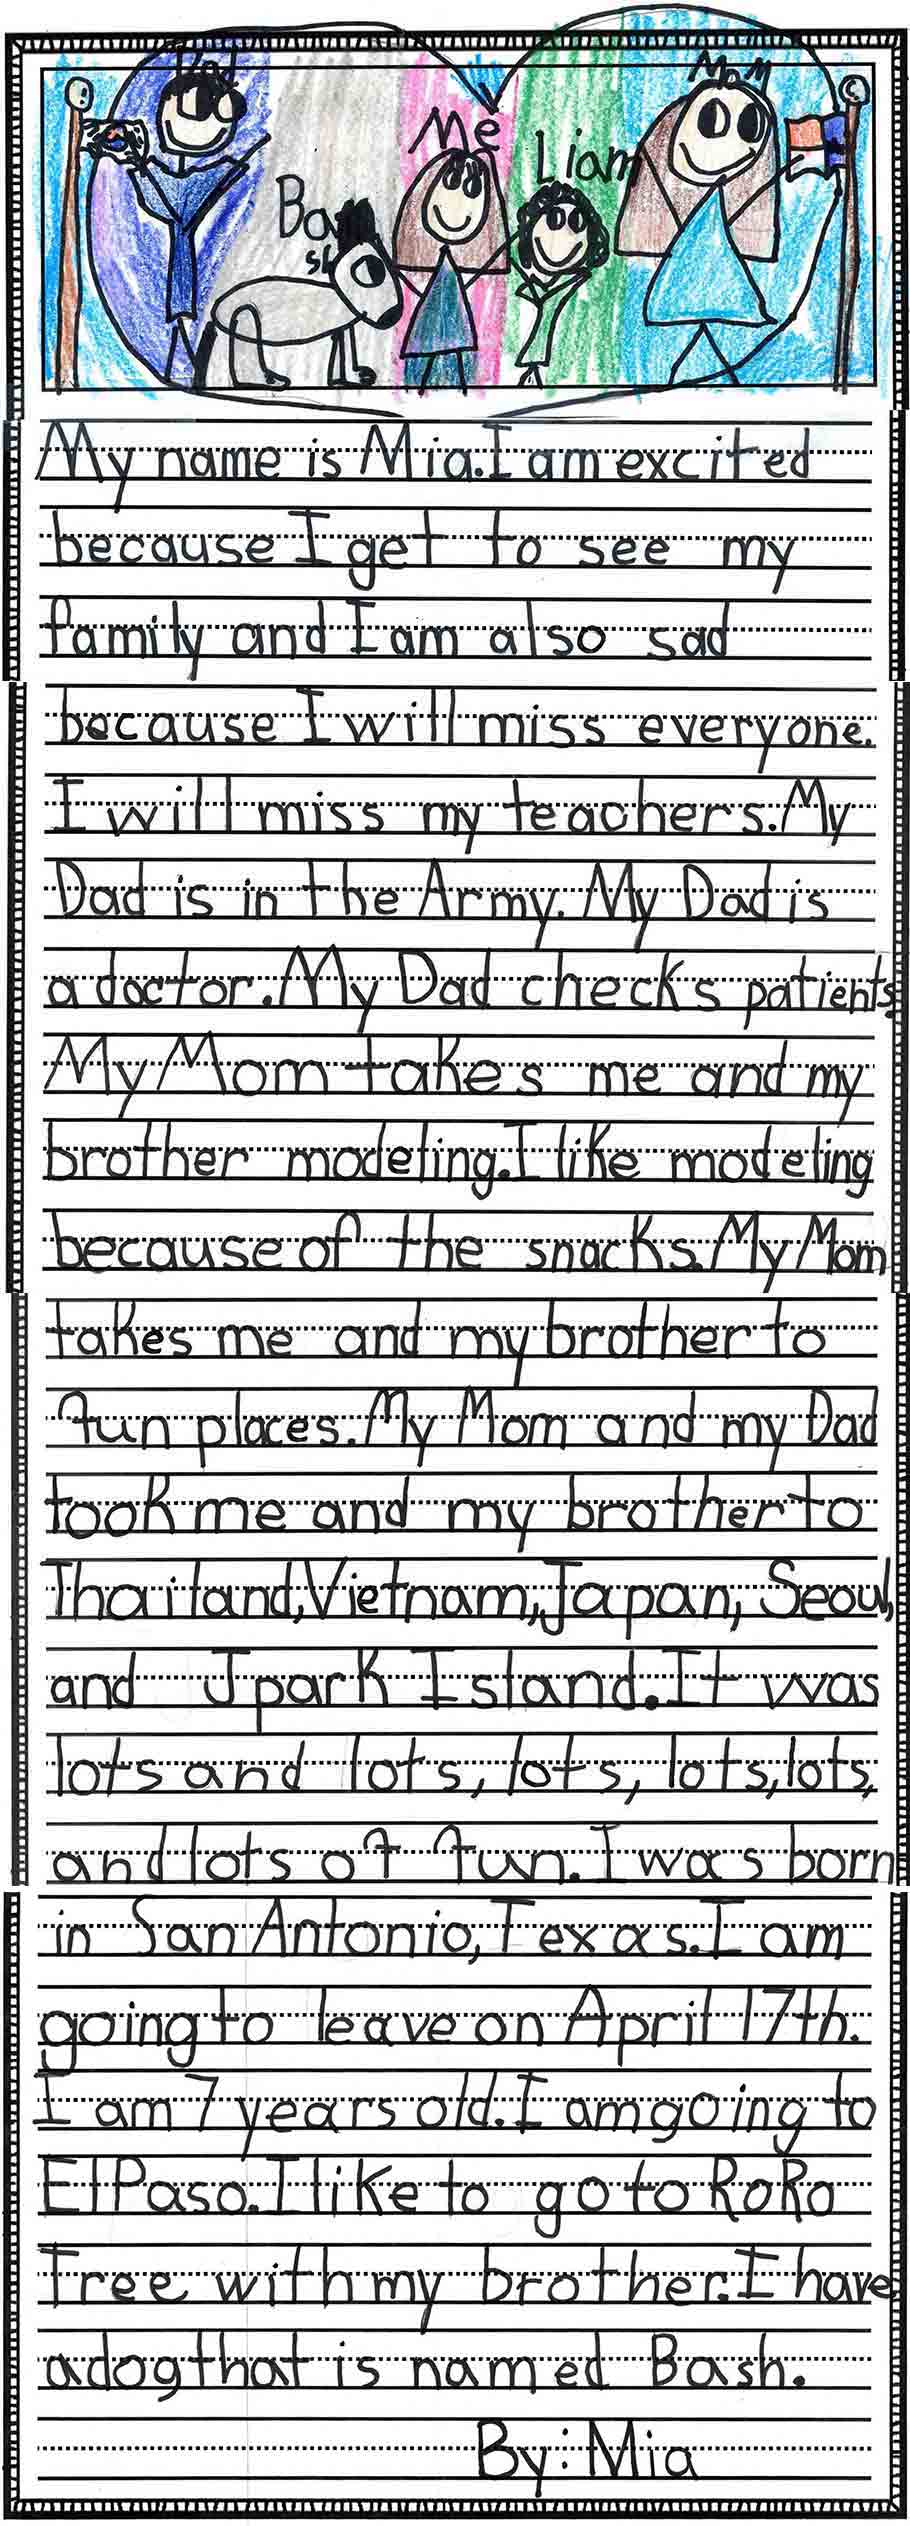 Dad
Mom
Me
Liam
Ba
sh
My name is Mia. I am excited
because I get to see my
family and I am also sad
because I will miss everyone.
I will miss my teachers. My
Dad is in the Army. My Dad is
a doctor. My Dad checks patients.
My Mom takes me and my
brother modeling. I like modeling
because of the snacks. My Mom
takes me and my brother to
fun places. My Mom and my Dad
took me and my brother to
Thailand, Vietnam, Japan, Seoul,
and Jpark Island. It was
lots and lots, lots, lots, lots,
and lots of fun. I was born
in San Antonio, Texas. I am
going to leave on April 17th.
I am 7 years old. I am going to
El Paso. I like to go to RoRo
Tree with my brother. I have
a dog that is named Bash.
By: Mia